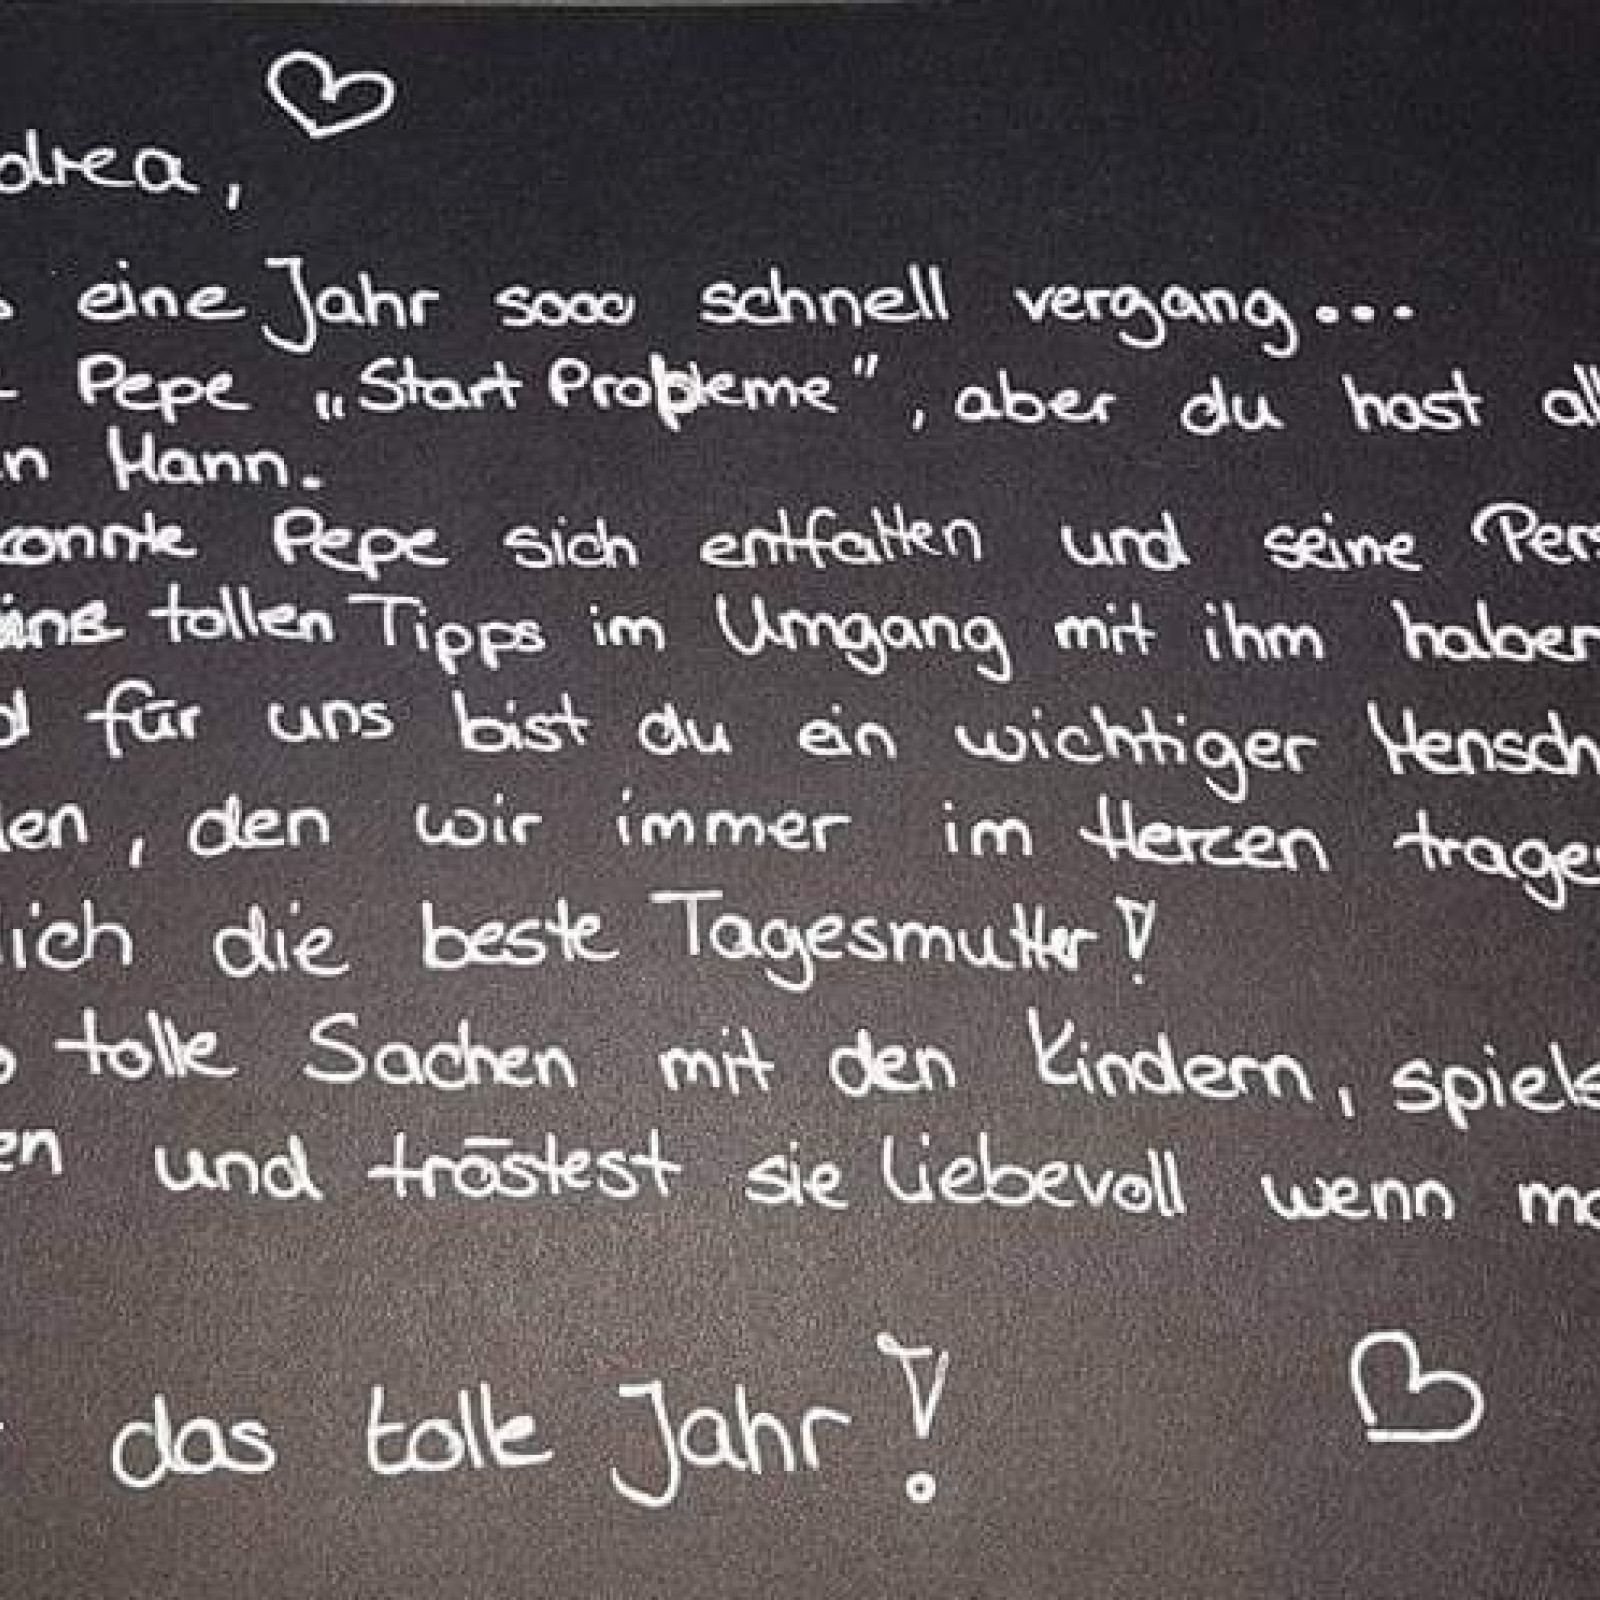 drea,
eine Jahr sooo schnell vergang...
Pepe „Start Probleme", aber du hast all
n Mann.
konnte Pepe sich entfalten und seine Pers
tollen Tipps im Umgang mit ihm haben
d für uns bist du ein wichtiger Mensch
den, den wir immer im Herzen tragen
lich die beste Tagesmutter!
o tolle Sachen mit den Kindern, spiels
en und tröstest sie liebevoll wenn ma
das tolle Jahr!